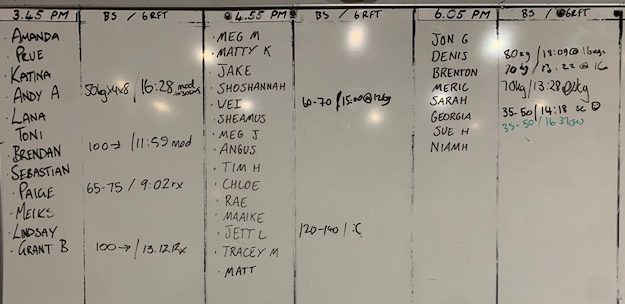 3.45 PM BS / 6RFT
· AMANDA
· PRUE
· KATINA
· ANDY A 50kg x4x8 / 16:28 mod
· LANA
TONI
· BRENDAN 100→ / 11:59 mod
· SEBASTIAN
· PAIGE 65-75 / 9:02 rx
· MEIKS
· LINDSAY
· GRANT B 100→ / 13.12 Rx
4.55 PM BS / 6RFT
· MEG M
· MATTY K
· JAKE
· SHOSHANNAH
· VEI 60-70 / 15:00 @ 12kg
· SHEAMUS
· MEG J
· ANGUS
· TIM H
· CHLOE
· RAE
· MAAIKE
· JETT L 120-140 / :C
· TRACEY M
· MATT
6.05 PM BS / 6RFT
JON G
DENIS 80kg / 18:09 @ 16kgs
BRENTON 70kg / 13.22 @ 16
MERIC 70kg / 13:28 @ 22kg
SARAH
GEORGIA 35-50 / 14:18 sc
SUE H 35-50 / 16:37 (sc)
NIAMH